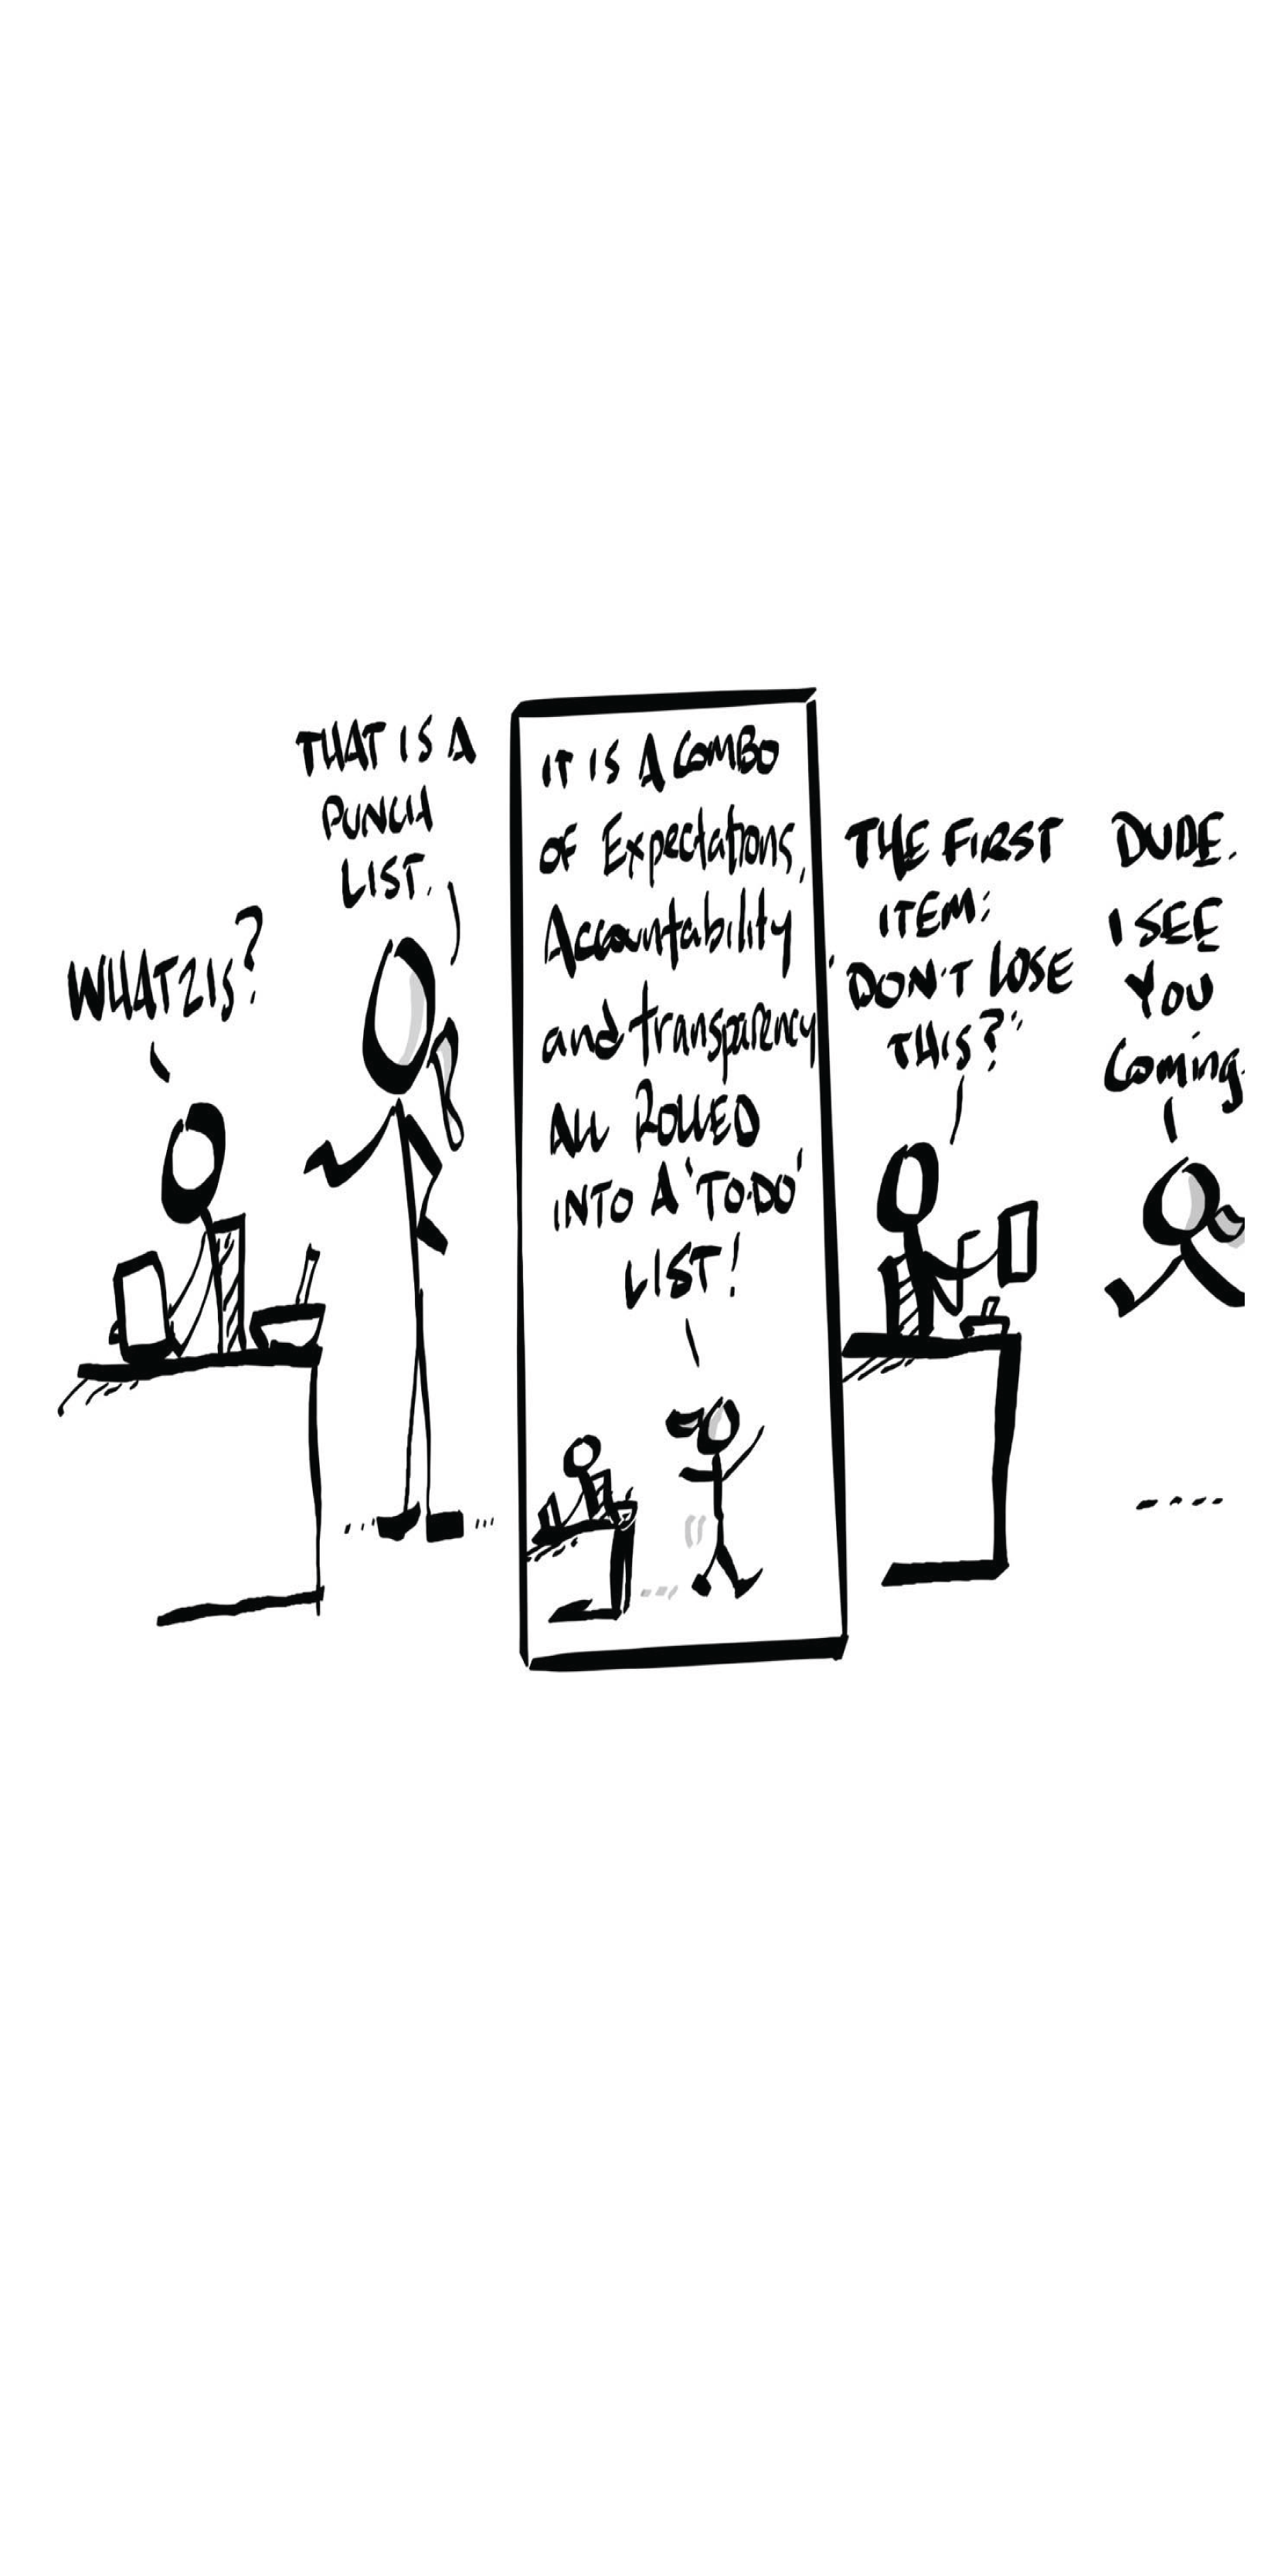 WHATZIS?
THAT IS A
PUNCH
LIST.
IT IS A COMBO
OF Expectations,
Accountability
and transparency
ALL ROLLED
INTO A 'TO-DO'
LIST!
THE FIRST
ITEM:
'DON'T LOSE
THIS?'
DUDE.
I SEE
YOU
Coming.